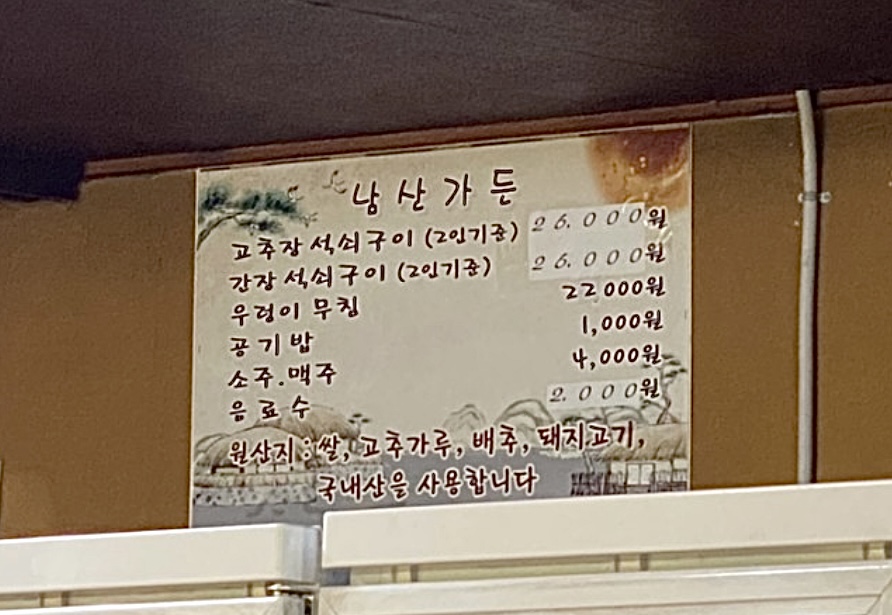 남산가든
고추장 석쇠구이 (2인기준) 26.000원
간장 석쇠구이 (2인기준) 26.000원
우렁이 무침 22000원
공기밥 1,000원
소주.맥주 4,000원
음료수 2.000원
원산지 : 쌀, 고추가루, 배추, 돼지고기,
국내산을 사용합니다